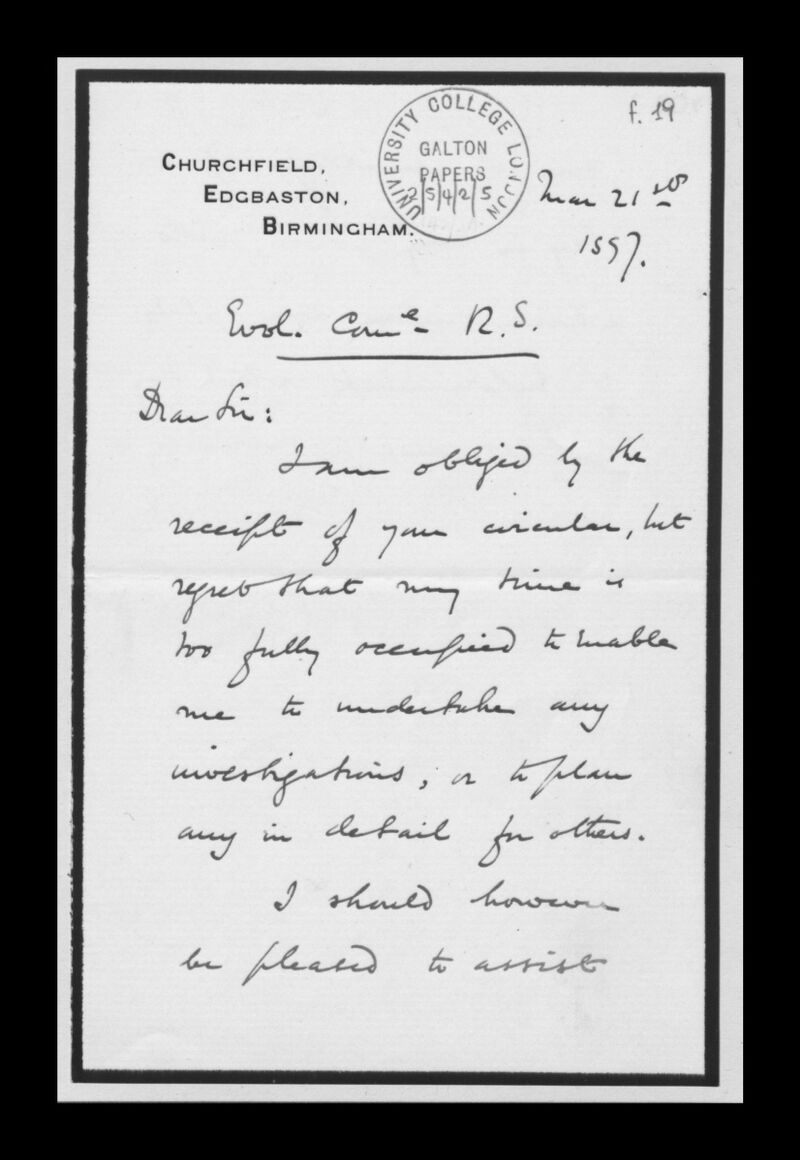 f. 19
UNIVERSITY COLLEGE LONDON
GALTON
PAPERS
2/5/4/2/5
CHURCHFIELD,
EDGBASTON,
BIRMINGHAM.
Mar 21st
1897.
Evol. Comᵉ R. S.
Dear Sir:
I am obliged by the
receipt of your circular, but
regret that my time is
too fully occupied to enable
me to undertake any
investigations, or to plan
any in detail for others.
I should however
be pleased to assist